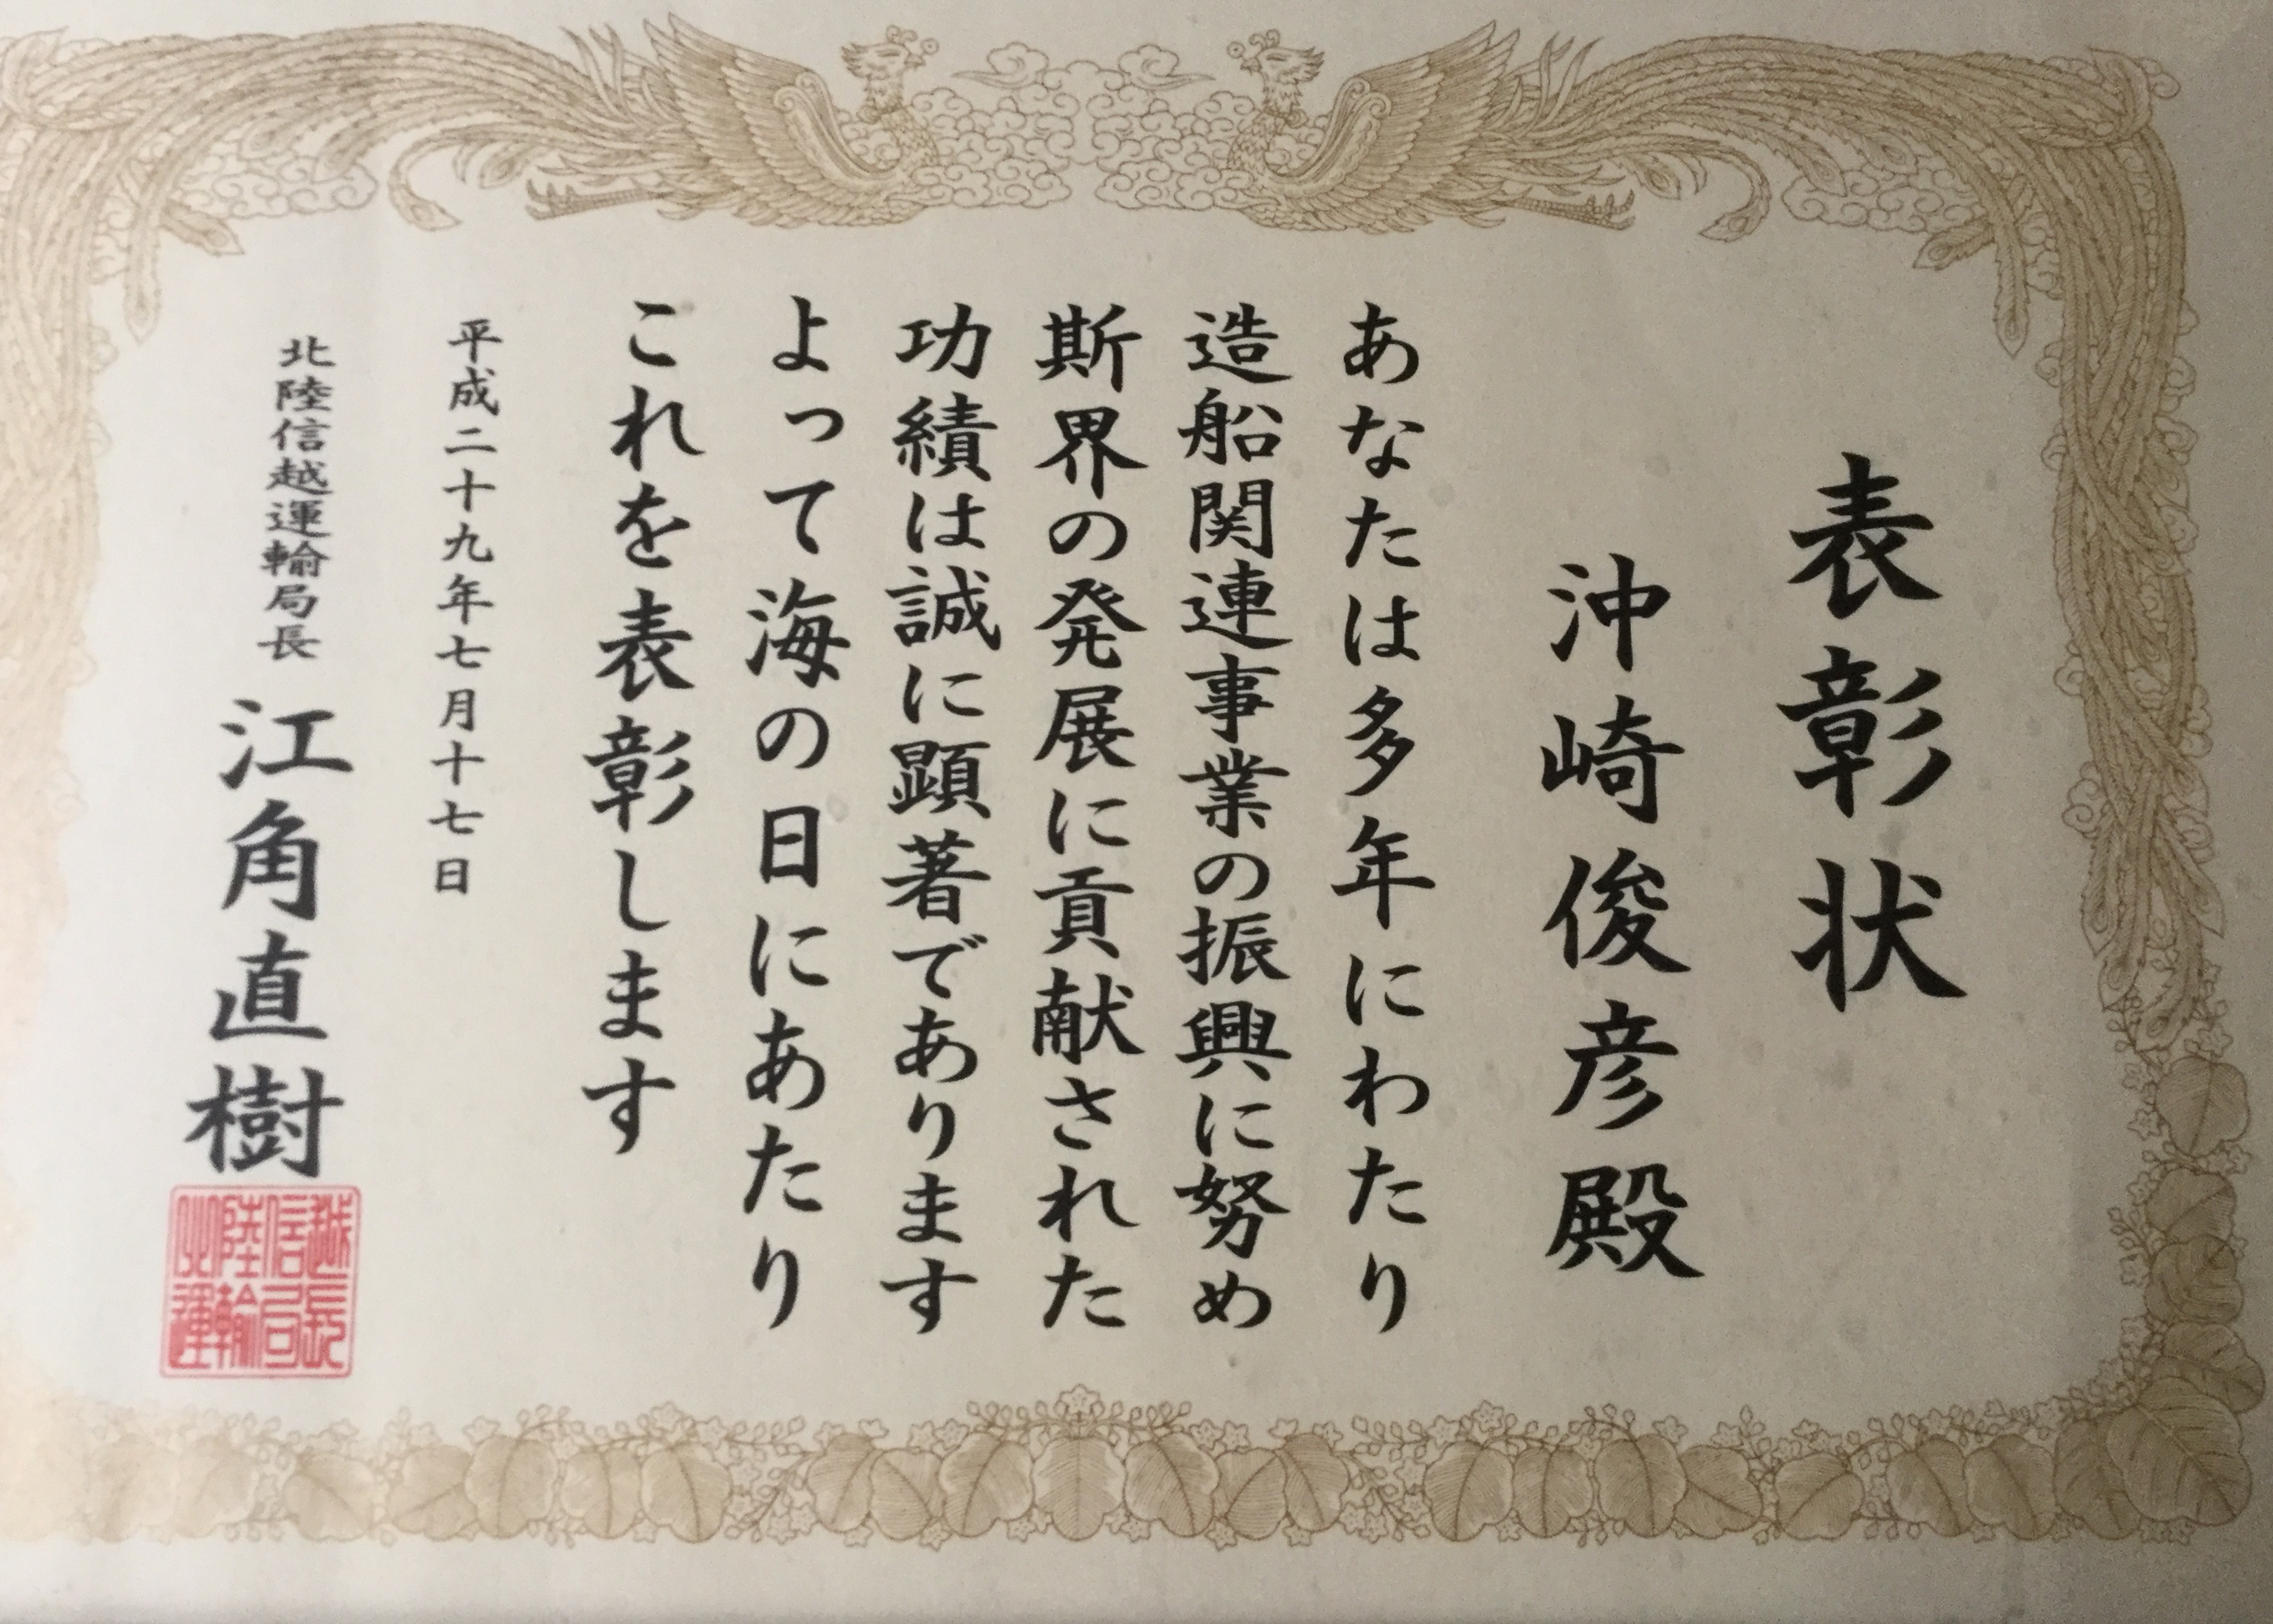 表彰状
沖崎俊彦殿
あなたは多年にわたり
造船関連事業の振興に努め
斯界の発展に貢献された
功績は誠に顕著であります
よって海の日にあたり
これを表彰します
平成二十九年七月十七日
北陸信越運輸局長 江角直樹
越信陸北
長局輸運